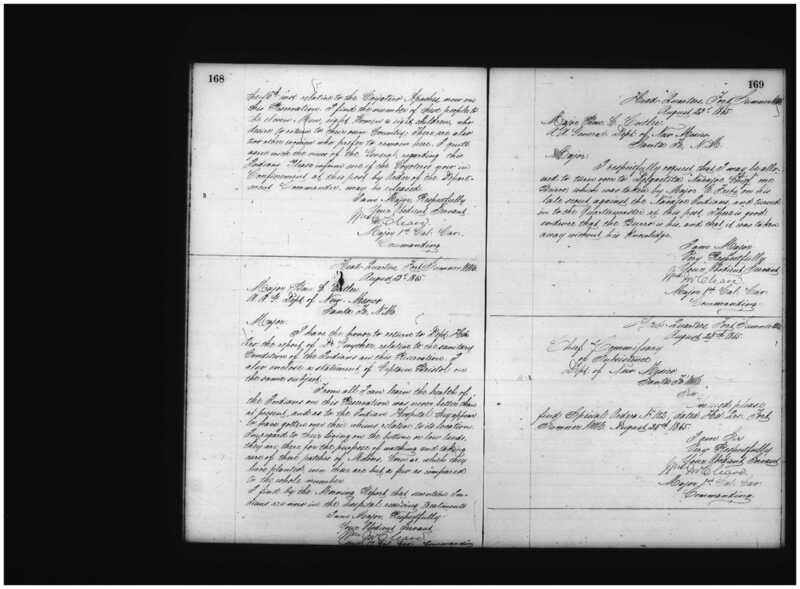 168
the 15th inst relative to the Coyotero Apaches now on
this Reservation. I find the number of these people to
be eleven Men, eight Women & eight children, who
desire to return to their own Country; There are also
two other women who prefer to remain here. I quite
agree with the views of the General, regarding this
Indians. Please inform me if the Coyoteros now in
Confinement at this post by Order of the Depart-
ment Commander may be released.
I am Major, Respectfully
Your Obedient Servant
McCleave
Major 1st Cal. Cav.
Commanding
Head Quarters Fort Sumner N.M.
August 1865.
Major Cutler
A.A.G. Dept of New Mexico
Santa Fe, N.M.
Major:
I have the honor to return to Dept. Head
the report of Dr. relative to the sanitary
Condition of the Indians on this Reservation. I
also enclose a statement of Captain Bristol on
the same subject.
From all I can learn the health of
the Indians on this Reservation was never better than
at present, and as to the Indian Hospital they appear
to have gotten over their whims relation to its location.
In regard to their living on the bottoms or low lands,
they are there for the purpose of and taking
care of their patches of Melons, Corn &c which they
have planted, even these are but a few as compared
to the whole number.
I find by the Morning Report that seventeen In-
dians are now in the hospital receiving treatment.
I am Major, Respectfully
Your Obedient Servant
McCleave
Commanding
169
Head Quarters Fort Sumner N.M.
August 23d 1865.
Major Cutler
A.A. General Dept. of New Mexico
Santa Fe, N.M.
Major:
I respectfully request that I may be allo-
wed to turn over to Navajo Chief one
Burro, which was taken by Major E. Fritz, on his
late scout against the Navajo Indians and turned
in to the Quartermaster at this post. There is good
evidence that the Burro is his, and that it was taken
away without his Knowledge.
I am Major
Very Respectfully
Your Obedient Servant
McCleave
Major 1st Cal. Cav.
Commanding
Head Quarters Fort Sumner N.M.
August 25th 1865.
Chief Commissary
of Subsistence
Dept. of New Mexico
Santa Fe N.M.
Sir
Enclosed please
find Special Orders No. 112, dated Hd. Qrs. Fort
Sumner N.M. August 25th 1865.
I am Sir
Very Respectfully
Your Obedient Servant
McCleave
Major 1st Cal. Cav.
Commanding